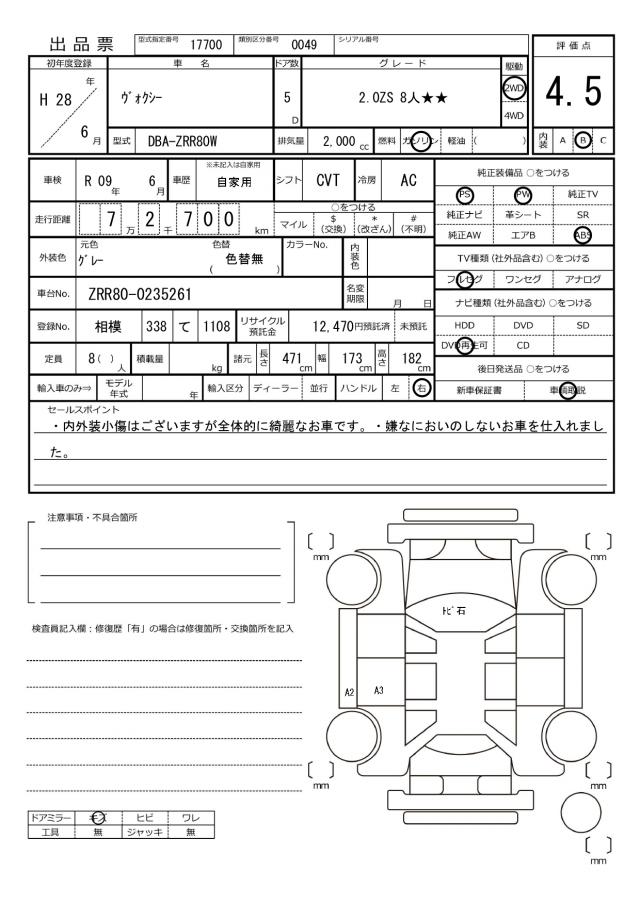 出品票 型式指定番号 17700 類別区分番号 0049 シリアル番号
評価点
4.5
初年度登録 車名 ドア数 グレード 駆動
H 28 年 6 月
ヴォクシー 5 D 2.0ZS 8人★★ 2WD 4WD
型式 DBA-ZRR80W 排気量 2,000 cc 燃料 ガソリン 軽油 ( )
内装 A B C
車検 R 09 年 6 月 車歴 ※未記入は自家用 自家用 シフト CVT 冷房 AC
走行距離 7 2 7 0 0 万 千 km
○をつける
マイル $ (交換) * (改ざん) # (不明)
外装色 元色 グレー 色替 ( 色替無 ) カラーNo. 内装色
車台No. ZRR80-0235261 名変期限 月 日
登録No. 相模 338 て 1108 リサイクル預託金 12,470円預託済 未預託
定員 8( ) 人 積載量 kg 諸元 長さ 471 cm 幅 173 cm 高さ 182 cm
輸入車のみ⇒ モデル年式 年 輸入区分 ディーラー 並行 ハンドル 左 右
純正装備品 ○をつける
PS PW 純正TV
純正ナビ 革シート SR
純正AW エアB ABS
TV種類 (社外品含む) ○をつける
フルセグ ワンセグ アナログ
ナビ種類 (社外品含む) ○をつける
HDD DVD SD
DVD再生可 CD
後日発送品 ○をつける
新車保証書 車輌取説
セールスポイント
・内外装小傷はございますが全体的に綺麗なお車です。・嫌なにおいのしないお車を仕入れまし
た。
注意事項・不具合箇所
検査員記入欄：修復歴「有」の場合は修復箇所・交換箇所を記入
mm
mm
トビ石
A2 A3
mm
mm
mm
ドアミラー キズ ヒビ ワレ
工具 無 ジャッキ 無